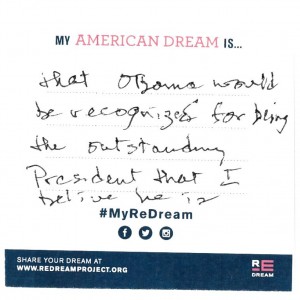 MY AMERICAN DREAM IS...
that Obama would
be recognized for being
the outstanding
President that I
believe he is
#MyReDream
SHARE YOUR DREAM AT
WWW.REDREAMPROJECT.ORG
RE
DREAM